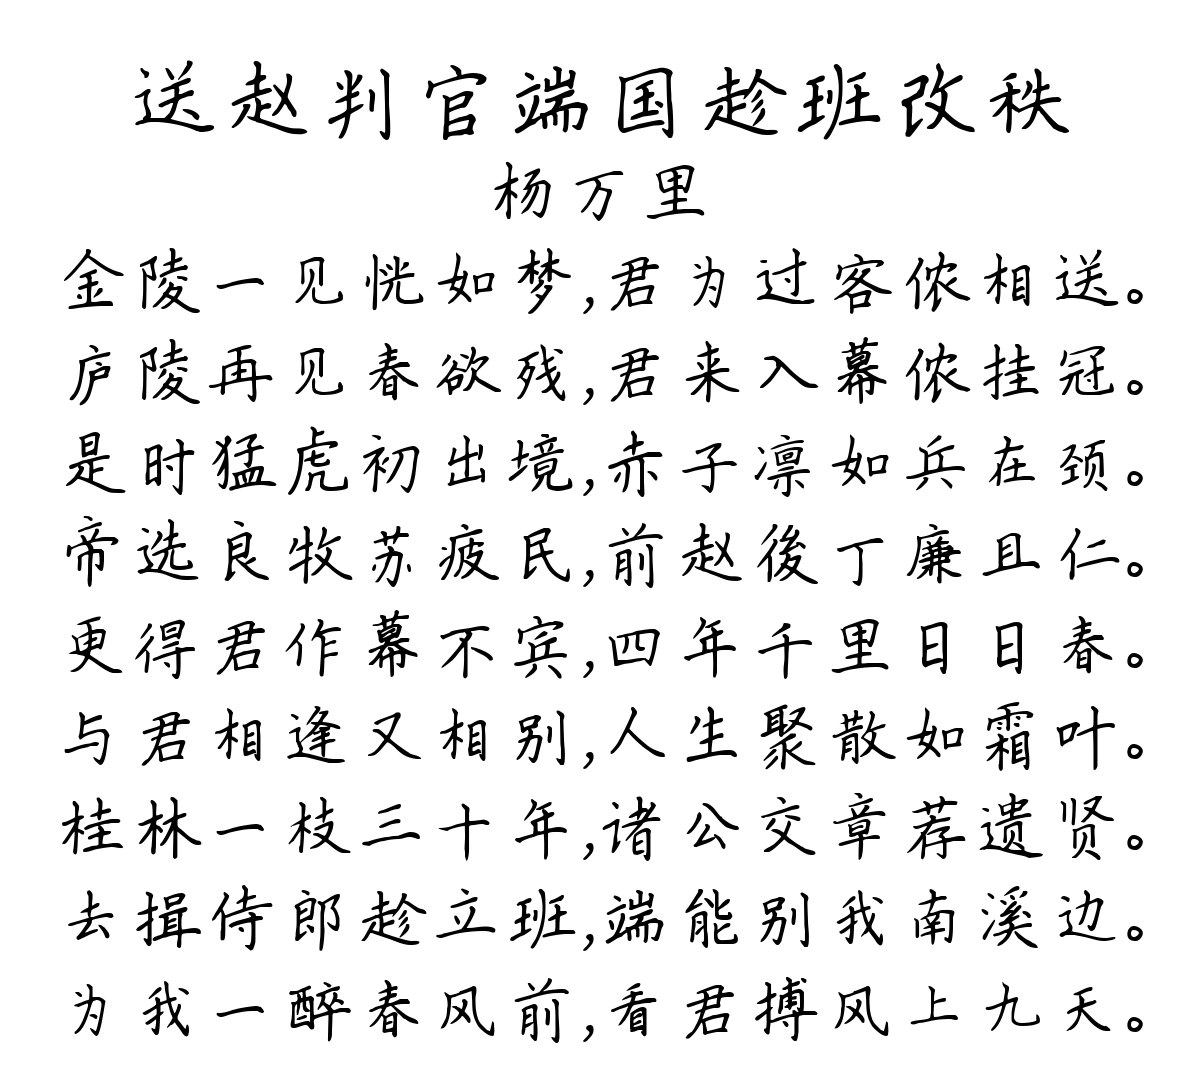 送赵判官端国趁班改秩
杨万里
金陵一见恍如梦,君为过客侬相送。
庐陵再见春欲残,君来入幕侬挂冠。
是时猛虎初出境,赤子凛如兵在颈。
帝选良牧苏疲民,前赵後丁廉且仁。
更得君作幕不宾,四年千里日日春。
与君相逢又相别,人生聚散如霜叶。
桂林一枝三十年,诸公交章荐遗贤。
去揖侍郎趁立班,端能别我南溪边。
为我一醉春风前,看君搏风上九天。